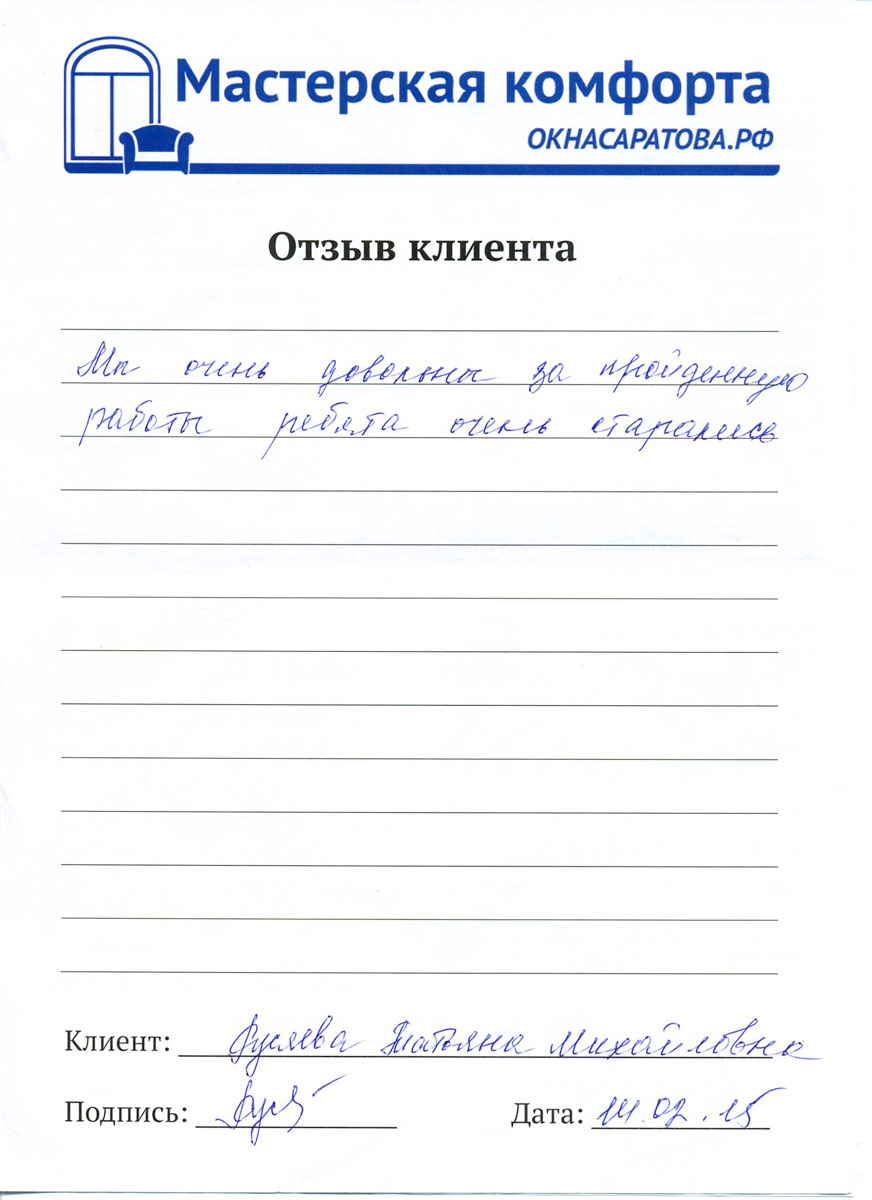 Мастерская комфорта
ОКНАСАРАТОВА.РФ
Отзыв клиента
Мы очень довольны за пройденную
работы ребята очень старались
Клиент: Гусяева Татьяна Михайловна
Подпись: Дата: 14.02.15